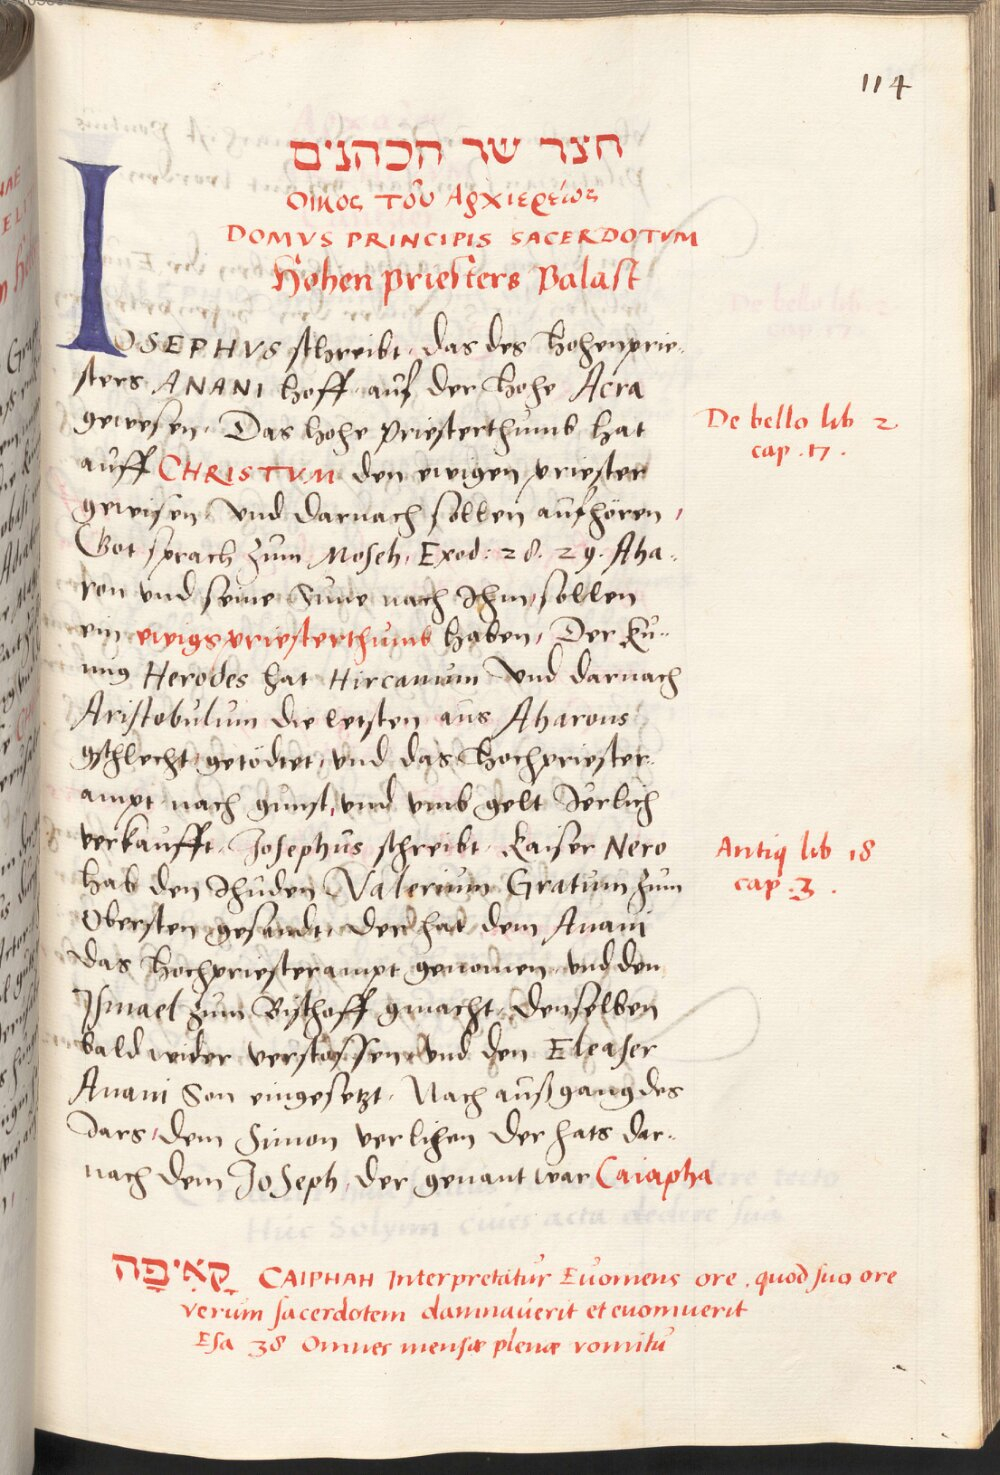 114
חצר שר הכהנים
Οικος τοῦ Αρχιερέως
DOMVS PRINCIPIS SACERDOTVM
Hohen priesters Palast
IOSEPHVS schreibt, das des Hohenprie-
sters ANANI hoff auf der hohe Acra
gewesen. Das hohe Priesterthumb hat
auff CHRISTVM den ewigen priester
gewisen, Vnd darnach sollen aufhören,
Got sprach zum Moseh, Exod: 28. 29. Aha-
ron vnd seine Sune nach Ihm, sollen
ein ewigs priesterthumb haben, Der Ku-
nig Herodes hat Hircanum Vnd darnach
Aristobulum die letsten aus Aharons
gschlecht getödtet, vnd das Hochpriester-
ampt nach gunst, vnd vmb gelt Jerlich
verkaufft. Josephus schreibt, Kaiser Nero
hab den Ihuden Valerium Gratum zum
Obersten gesandt, der hab dem Anani
das Hochpriesterampt genomen, vnd den
Ismael zum Byschoff gmacht, denselben
bald wider verstossen, Vnd den Eleaser
Anani Son eingesetzt. Nach außgang des
Jars, dem Simon verlihen der hats dar-
nach dem Joseph, der genant war Caiapha
De bello lib 2
cap. 17.
Antiq lib 18
cap. 3.
קָאִיפָה CAIPHAH Interpretatur Euomens ore, quod suo ore
verum sacerdotem damnauerit et euomuerit
Esa 38 Omnes mensæ plenæ vomitu